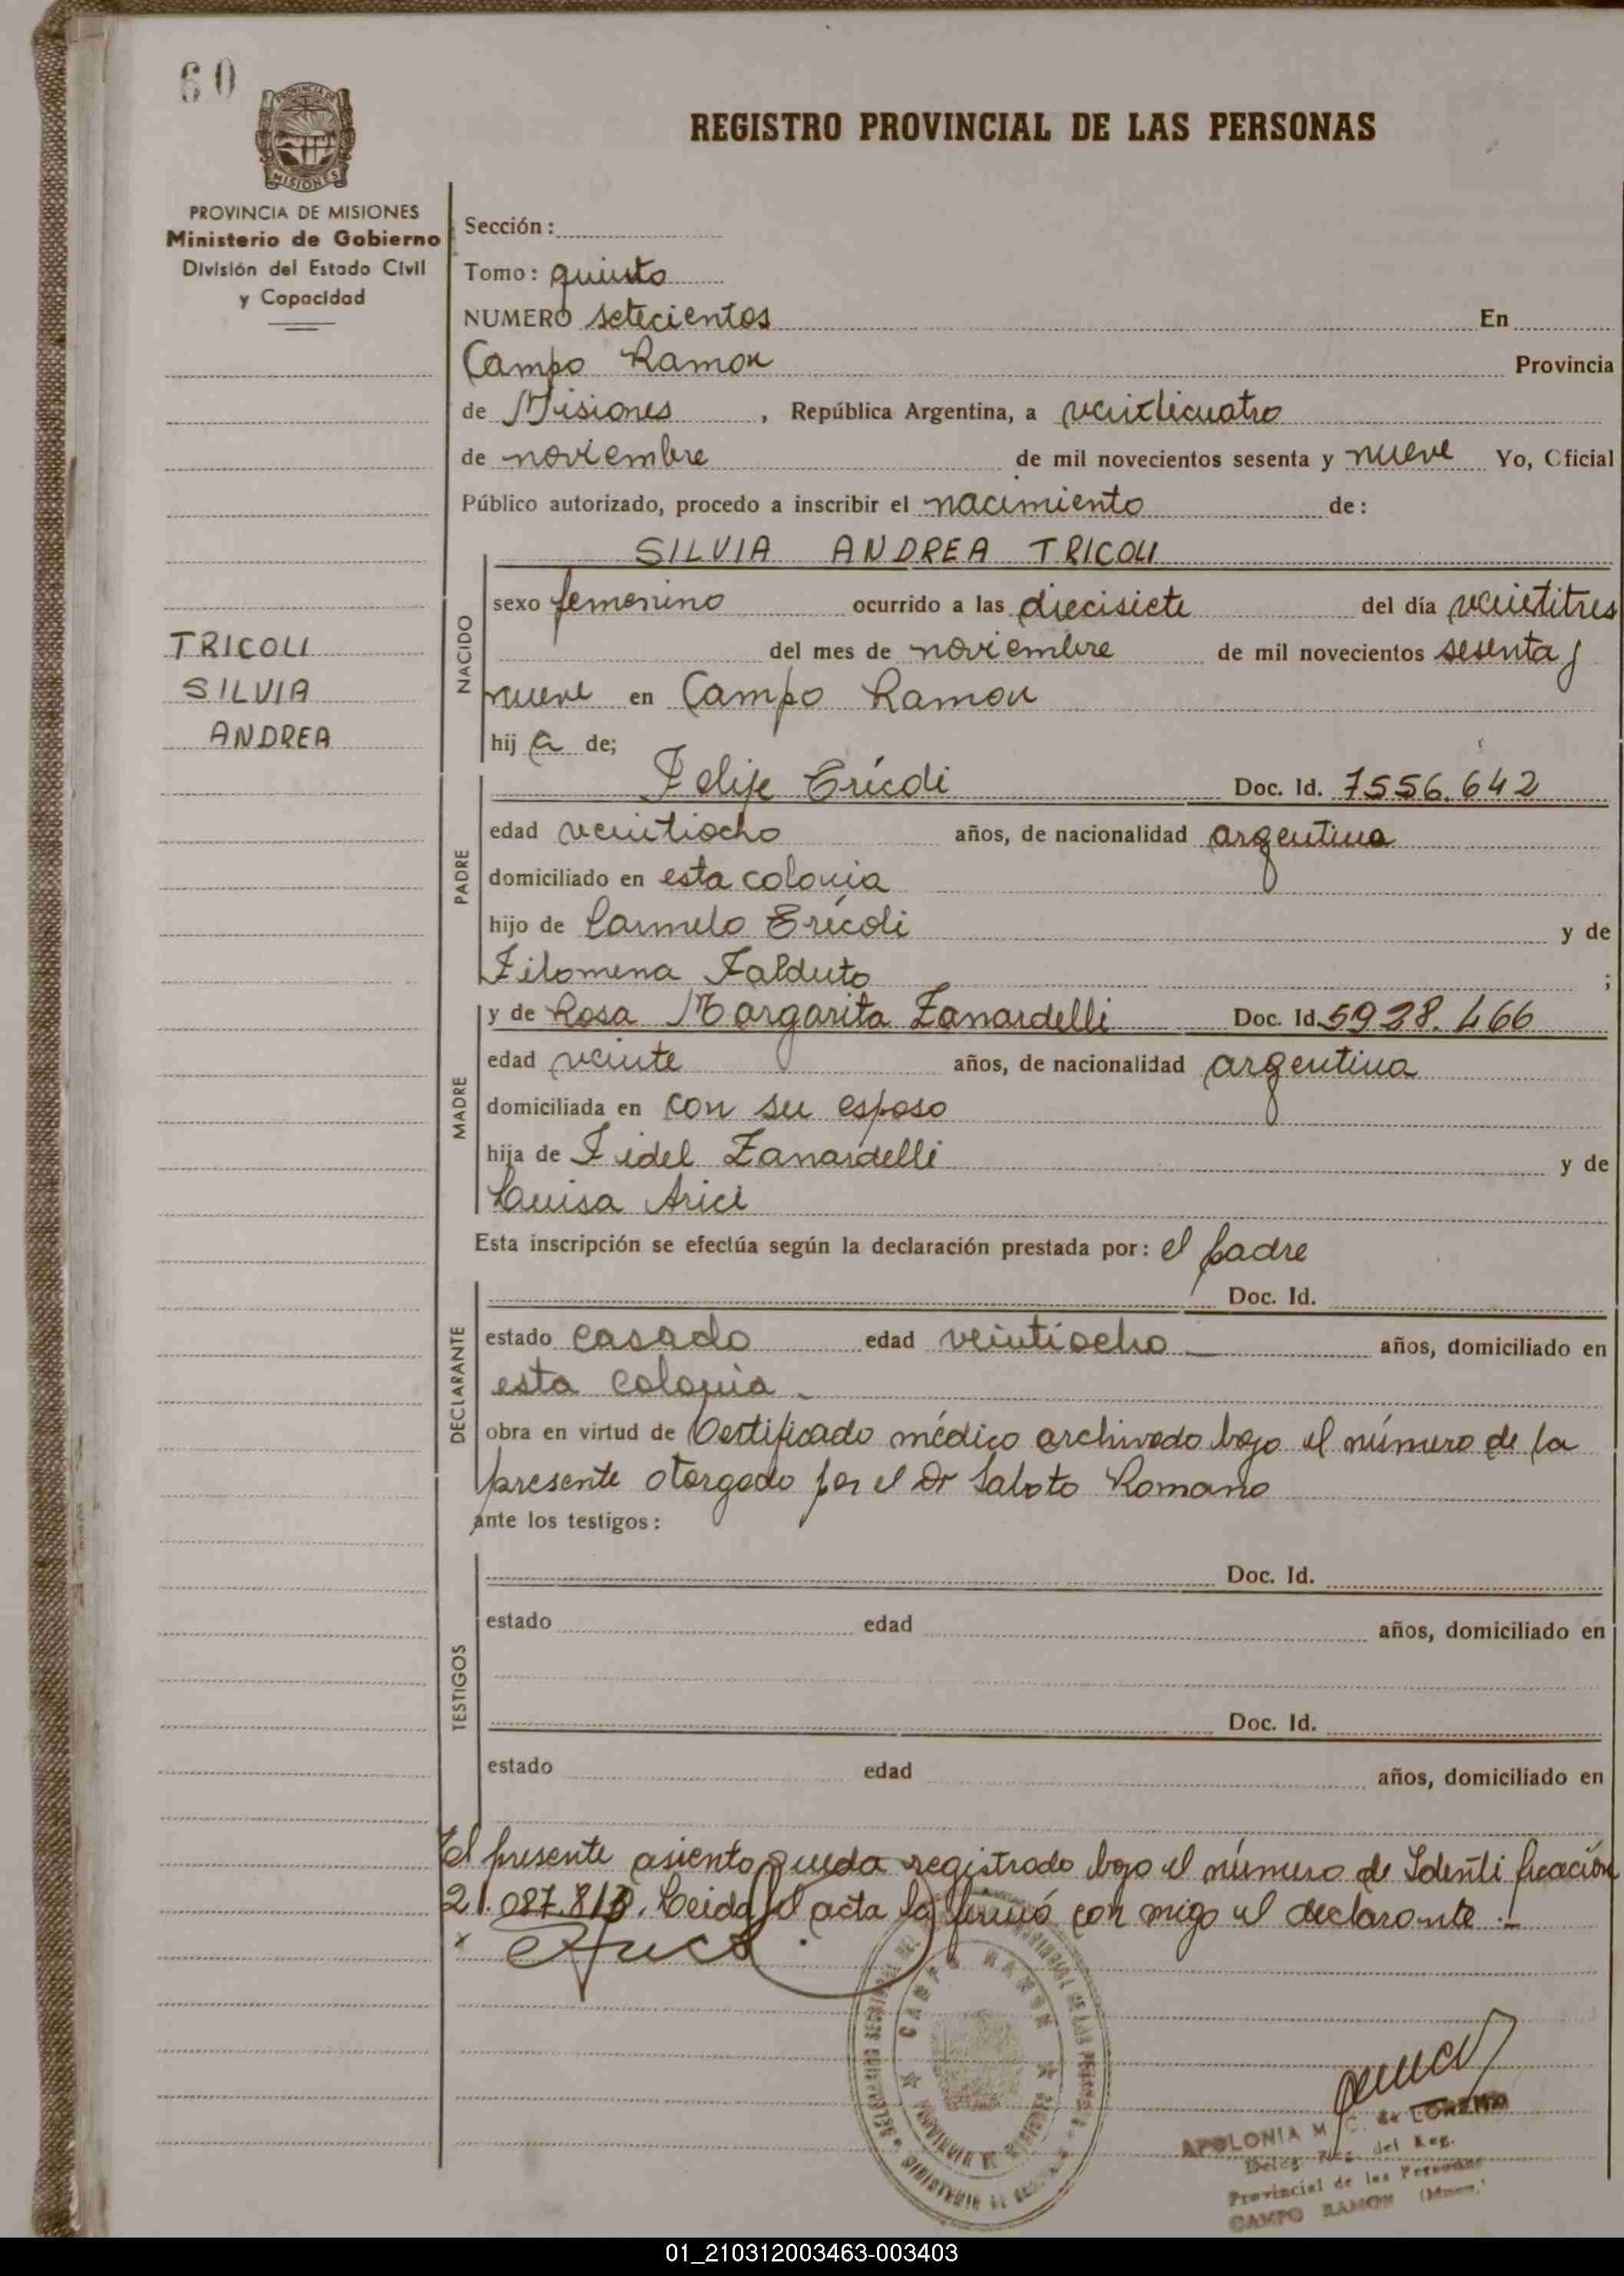 60
PROVINCIA DE
MISIONES
REGISTRO PROVINCIAL DE LAS PERSONAS
PROVINCIA DE MISIONES
Ministerio de Gobierno
División del Estado Civil
y Capacidad
TRICOLI
SILVIA
ANDREA
Sección:
Tomo: quinto
NUMERO setecientos En
Campo Ramon Provincia
de Misiones, República Argentina, a veinticuatro
de noviembre de mil novecientos sesenta y nueve Yo, Oficial
Público autorizado, procedo a inscribir el nacimiento de:
SILVIA ANDREA TRICOLI
NACIDO
sexo femenino ocurrido a las diecisiete del día veintitres
del mes de noviembre de mil novecientos sesenta y
nueve en Campo Ramon
hij a de;
PADRE
Felipe Trícoli Doc. Id. 7556.642
edad veintiocho años, de nacionalidad argentina
domiciliado en esta colonia
hijo de Carmelo Trícoli y de
Filomena Falduto ;
MADRE
y de Rosa Margarita Zanardelli Doc. Id. 5928.466
edad veinte años, de nacionalidad argentina
domiciliada en con su esposo
hija de Fidel Zanardelli y de
Luisa Arici
Esta inscripción se efectúa según la declaración prestada por: el padre
Doc. Id.
DECLARANTE
estado casado edad veintiocho años, domiciliado en
esta colonia
obra en virtud de Certificado médico archivado bajo el número de la
presente otorgado por el Dr Saboto Romano
ante los testigos:
TESTIGOS
Doc. Id.
estado edad años, domiciliado en
Doc. Id.
estado edad años, domiciliado en
El presente asiento queda registrado bajo el número de Identificación
21.087.813. Leida el acta la firmó con migo el declarante :-
CAMPO RAMON
PROVINCIA DE MISIONES
APOLONIA M. C. de LORENZO
Deleg. Reg. del Reg.
Provincial de las Personas
CAMPO RAMON (Mnes.)
01_210312003463-003403